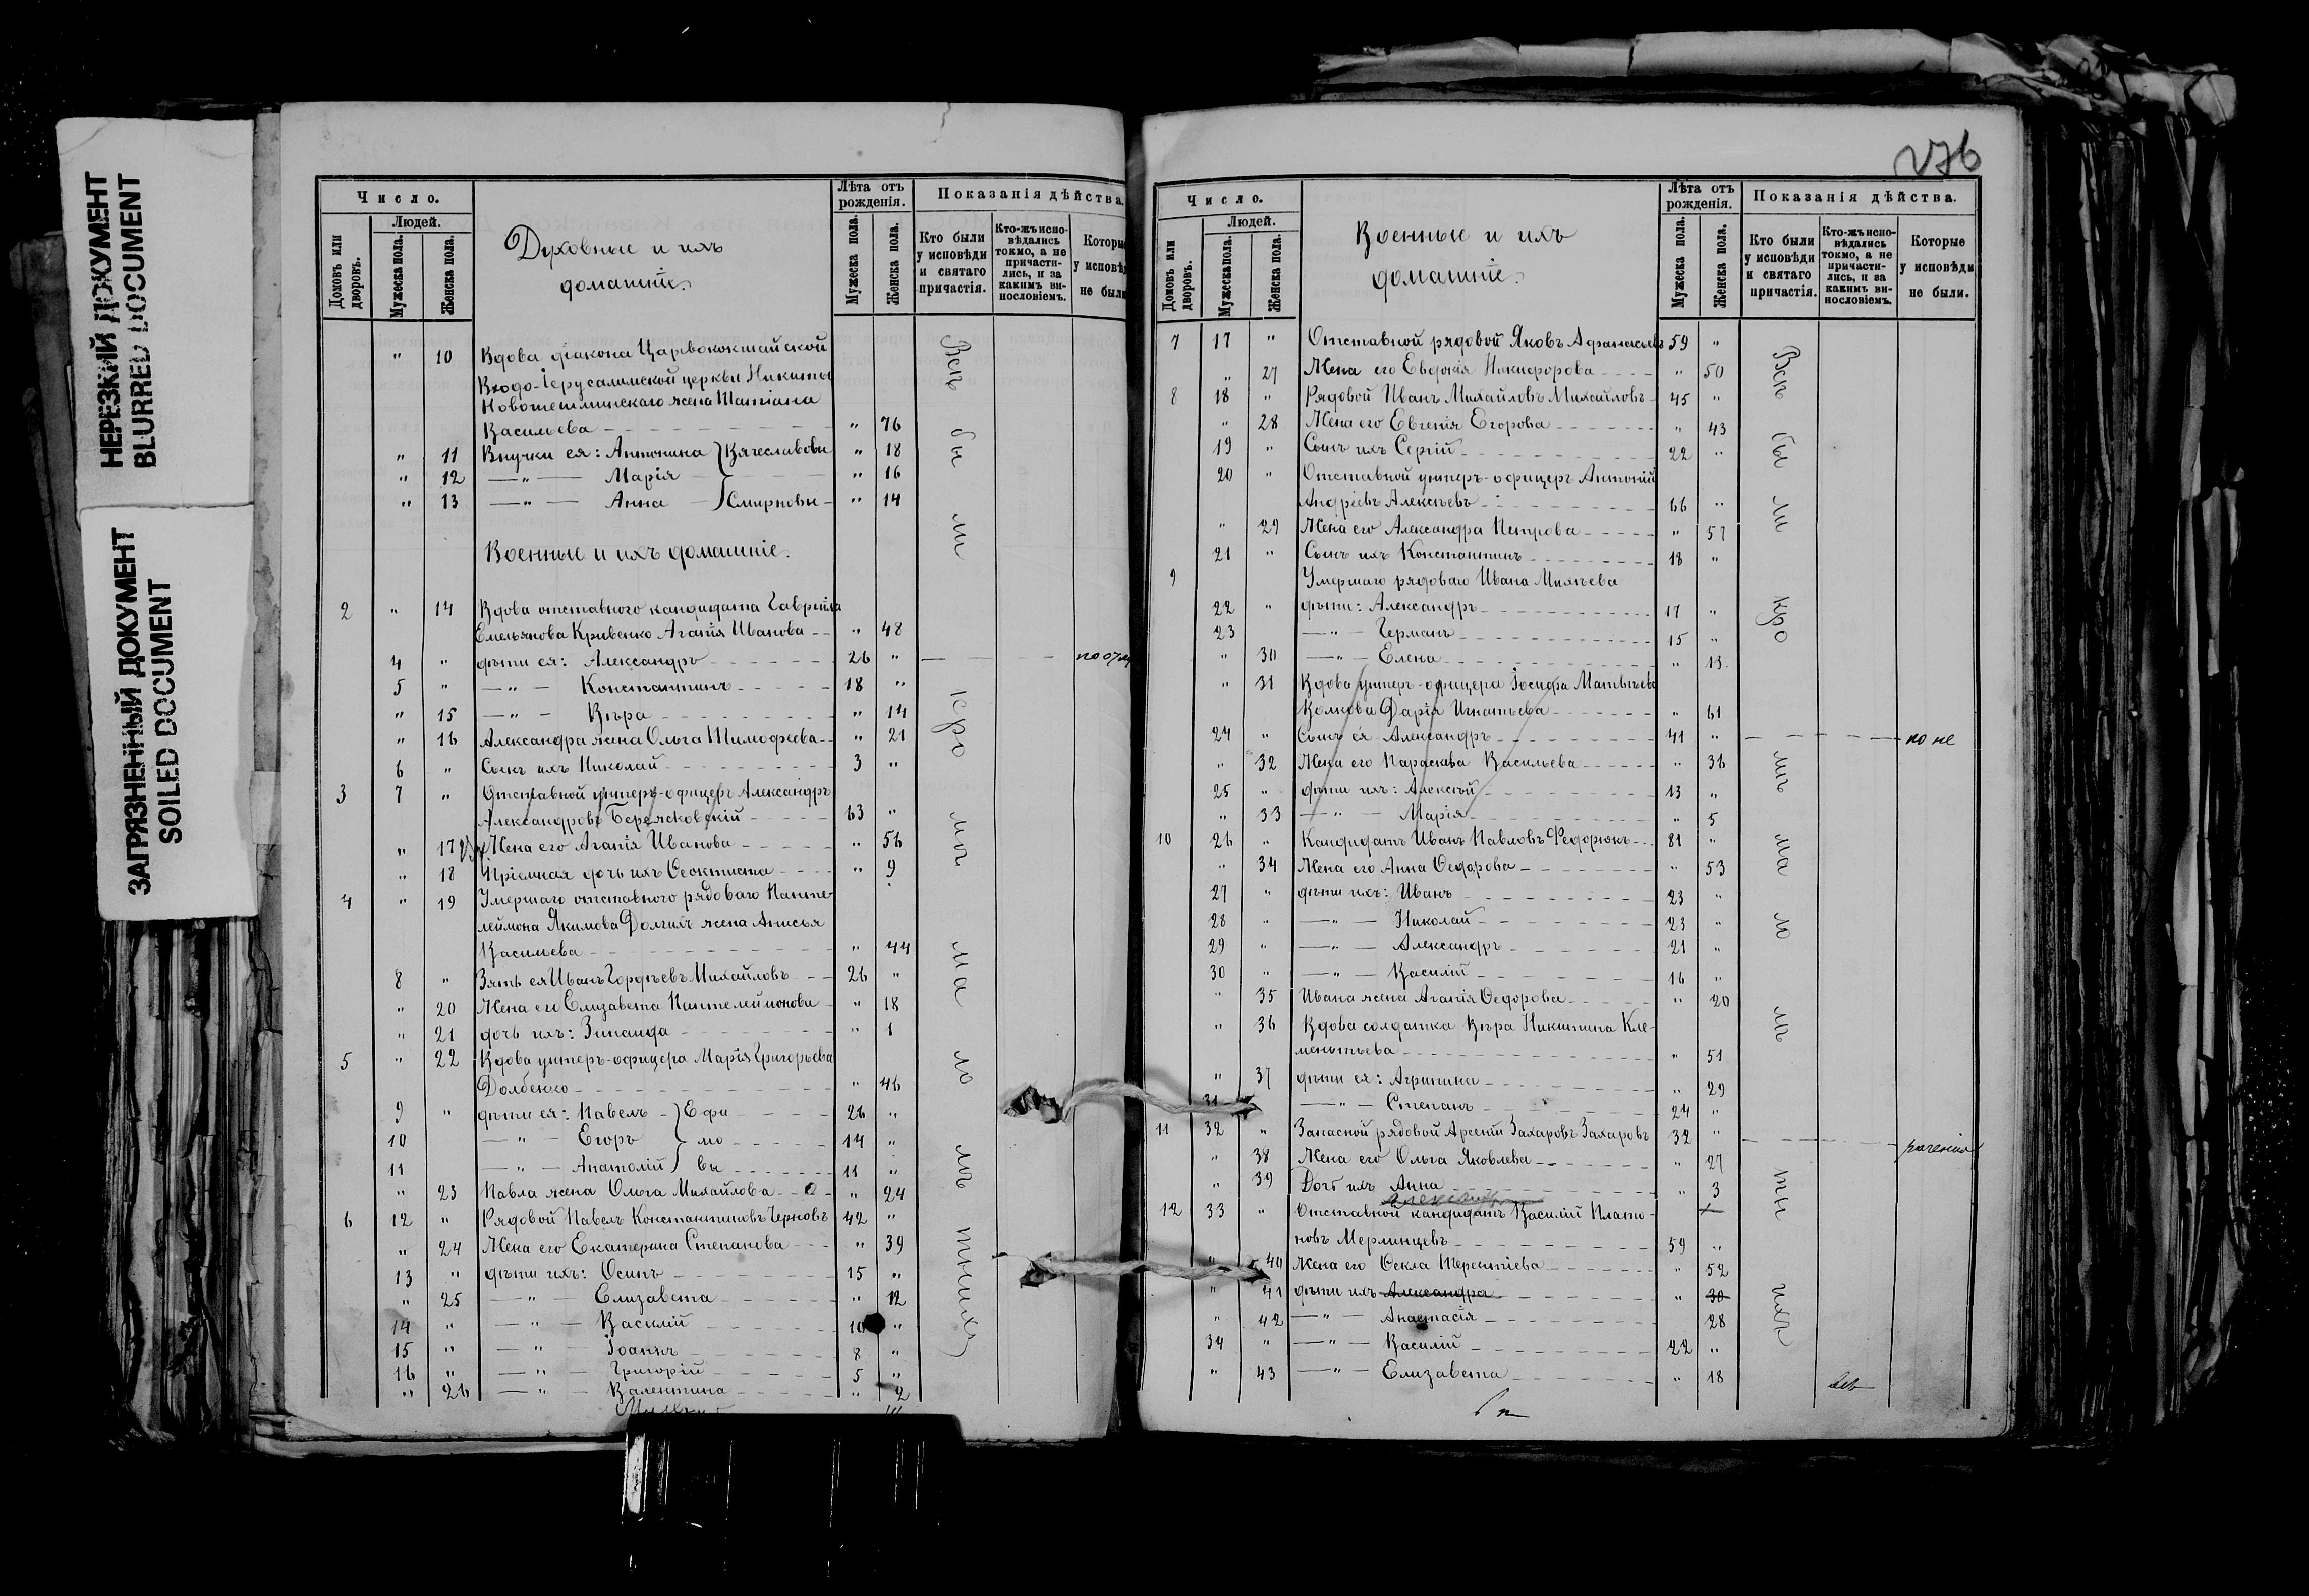 НЕРЕЗКИЙ ДОКУМЕНТ
BLURRED DOCUMENT
ЗАГРЯЗНЕННЫЙ ДОКУМЕНТ
SOILED DOCUMENT
Число.
Людей.
Домовъ или дворовъ.
Мужеска пола.
Женска пола.
Духовные и ихъ
домашніе.
Лѣта отъ рожденія.
Мужеска пола.
Женска пола.
Показанія дѣйства.
Кто были у исповѣди и святаго причастія.
Кто-жъ исповѣдались токмо, а не причастились, и за какимъ винословіемъ.
Которые у исповѣди не были
" 10 Вдова діакона Царевококшайской
Входо-Іерусалимской церкви Никиты
Новошешминскаго жена Татіана
Васильева " 76
" 11 Внучки ея: Антонина } Вячеславовы " 18
" 12 — " — Марія " 16
" 13 — " — Анна } Смирновы " 14
Военные и ихъ домашніе.
2 " 14 Вдова отставного кандидата Гавріила
Емельянова Кривенко Агапія Иванова " 48
4 " дѣти ея: Александръ 26 "
5 " — " — Константинъ 18 "
" 15 — " — Вѣра " 14
" 16 Александра жена Ольга Тимофеева " 21
6 " Сынъ ихъ Николай 3 "
3 7 " Отставной унтеръ-офицеръ Александръ
Александровъ 63 "
" 17 Жена его Агапія Иванова " 56
" 18 Пріемная дочь ихъ Ѳеоктиста " 9
4 " 19 Умершаго отставного рядоваго Панте-
леймона Якимова Долгихъ жена Анисья
Васильева " 44
8 " Зять ея Иванъ Гордѣевъ Михайловъ 26 "
" 20 Жена его Елизавета Пантелеймонова " 18
" 21 дочь ихъ: Зинаида " 1
5 " 22 Вдова унтеръ-офицера Марія Григорьева
Долбенко " 46
9 " дѣти ея: Павелъ } Ефи 26 "
10 — " — Егоръ } мо 14 "
11 — " — Анатолій } вы 11 "
" 23 Павла жена Ольга Михайлова " 24
6 12 " Рядовой Павелъ Константиновъ Черновъ 42 "
" 24 Жена его Екатерина Степанова " 39
13 " дѣти ихъ: Осипъ 15 "
" 25 — " — Елизавета " 12
14 " — " — Василій 10 "
15 " — " — Іоаннъ 8 "
16 " — " — Григорій 5 "
" 26 — " — Валентина " 2
Всѣ были кромѣ малолѣтнихъ
276
Число.
Людей.
Домовъ или дворовъ.
Мужеска пола.
Женска пола.
Военные и ихъ
домашніе.
Лѣта отъ рожденія.
Мужеска пола.
Женска пола.
Показанія дѣйства.
Кто были у исповѣди и святаго причастія.
Кто-жъ исповѣдались токмо, а не причастились, и за какимъ винословіемъ.
Которые у исповѣди не были.
7 17 " Отставной рядовой Яковъ Афанасьевъ 59 "
" 27 Жена его Евдокія Никифорова " 50
8 18 " Рядовой Иванъ Михайловъ Михайловъ 45 "
" 28 Жена его Евгенія Егорова " 43
19 " Сынъ ихъ Сергій 22 "
20 " Отставной унтеръ-офицеръ Антоній
Андреевъ Алексѣевъ 66 "
" 29 Жена его Александра Петрова " 57
21 " Сынъ ихъ Константинъ 18 "
9 Умершаго рядоваго Ивана Михѣева
22 " дѣти: Александръ 17 "
23 — " — Германъ 15 "
" 30 — " — Елена " 13
" 31 Вдова унтеръ-офицера Іосифа Матвѣева
Волкова Дарія Игнатьева " 61
24 " Сынъ ея Александръ 41 " по не
" 32 Жена его Параскева Васильева " 36
25 " дѣти ихъ: Алексѣй 13 "
" 33 — " — Марія " 5
10 26 " Кандидатъ Иванъ Павловъ Федорюкъ 81 "
" 34 Жена его Анна Ѳедорова " 53
27 " дѣти ихъ: Иванъ 23 "
28 " — " — Николай 23 "
29 " — " — Александръ 21 "
30 " — " — Василій 16 "
" 35 Ивана жена Агапія Ѳедорова " 20
" 36 Вдова солдатка Вѣра Никитина Кле-
ментьева " 51
" 37 дѣти ея: Агрипина " 29
31 — " — Степанъ 24 "
11 32 " Запасной рядовой Арсеній Захаровъ Захаровъ 32 " раченію
" 38 Жена его Ольга Яковлева " 27
" 39 Дочь ихъ Анна " 3
12 33 " Отставной кандидатъ Василій Плато-
новъ Мерлинцевъ 59 "
" 40 Жена его Ѳекла Терентіева " 52
" 41 дѣти ихъ Александра " 30
" 42 — " — Анастасія 28
34 " — " — Василій 22 "
" 43 — " — Елизавета " 18
Всѣ были кромѣ малолѣтнихъ